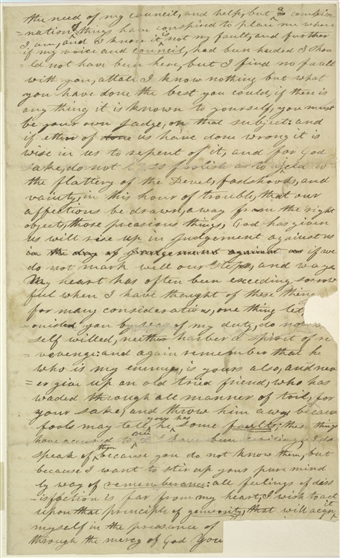 the need of my council, and help, but a combi
-nation of things have conspired to place me where
I am, and I know it is not my fault, and further
if my voice and council, had been heeded I shou
-ld not have been here, but I find no fault
with you, attall I know nothing but what
you have done the best you could, if there is
any thing it is known to yourself, you must
be your own Judge, on that subject: and
if ether of done us have done wrong it is
wise in us to repent of it, and for God
sake, do not be so foolish as to yield to
the flattery of the Devel, faslshoods, and
vainty, in this hour of trouble, that our
affections be drawn, away from the right
object, those preasious things, God has given
us will rise up in judgement against us
in the day of judgement against us if we
do not mark well our steps, and ways.
My heart has often been exceding sorrow
ful when I have thought of these thing
for many considerations, one thing let
you by way of my duty, do not
self willed, neither harber a spirit of re
vevenge: and again remember that he
who is my enemys, is yours also, and nev
-er give up an old tried friend, who has
waded through all manner of toil, for
your sake, and throw him away becau
fools may tell you he has some faults; these things
have accured to me as I have been writing, I do
speak of them because you do not know them, but
because I want to stir up your pure mind
by way of rememberance: all feelings of diss
isfaction is far from my heart, I wish to act
upon that principle of generosity, that will acquit
myself in the preasance of
through the mercy of God You